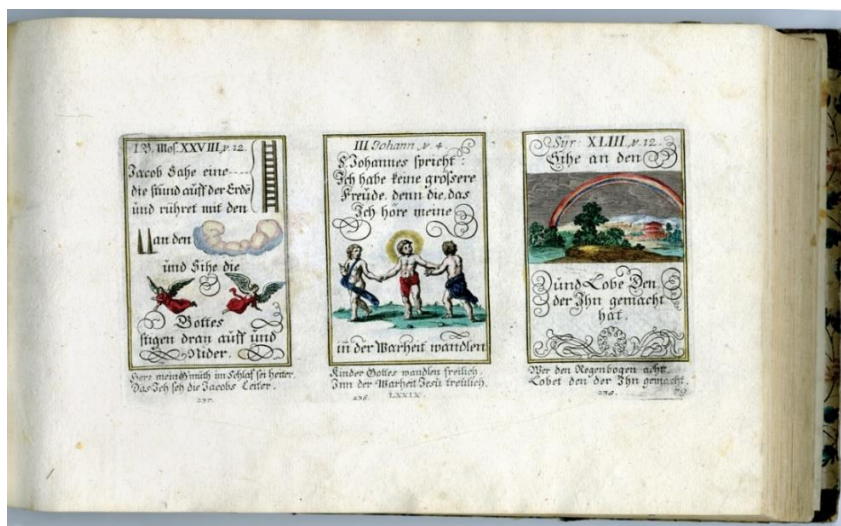 I B. Mos. XXVIII, v. 12.
Jacob Sahe eine
die stund auff der Erde
und rühret mit den
an den
und Sihe die
Gottes
stigen dran auff und
Nider.
Herz mein Gmüth im Schlaf sei heiter.
Das Ich seh die Jacobs Leiter.
237.
III Johann, v. 4
S. Johannes spricht:
Ich habe keine grössere
Freude. denn die, das
Ich höre meine
in der Warheit wandlen
Kinder Gottes wandlen freilich.
Inn der Warheit Jesu treülich.
238.
LXXIX.
Syr: XLIII, v. 12.
Sihe an den
und Lobe Den
der Ihn gemacht
hat.
Wer den Regenbogen acht.
Lobet den der Ihn gemacht.
239.
79